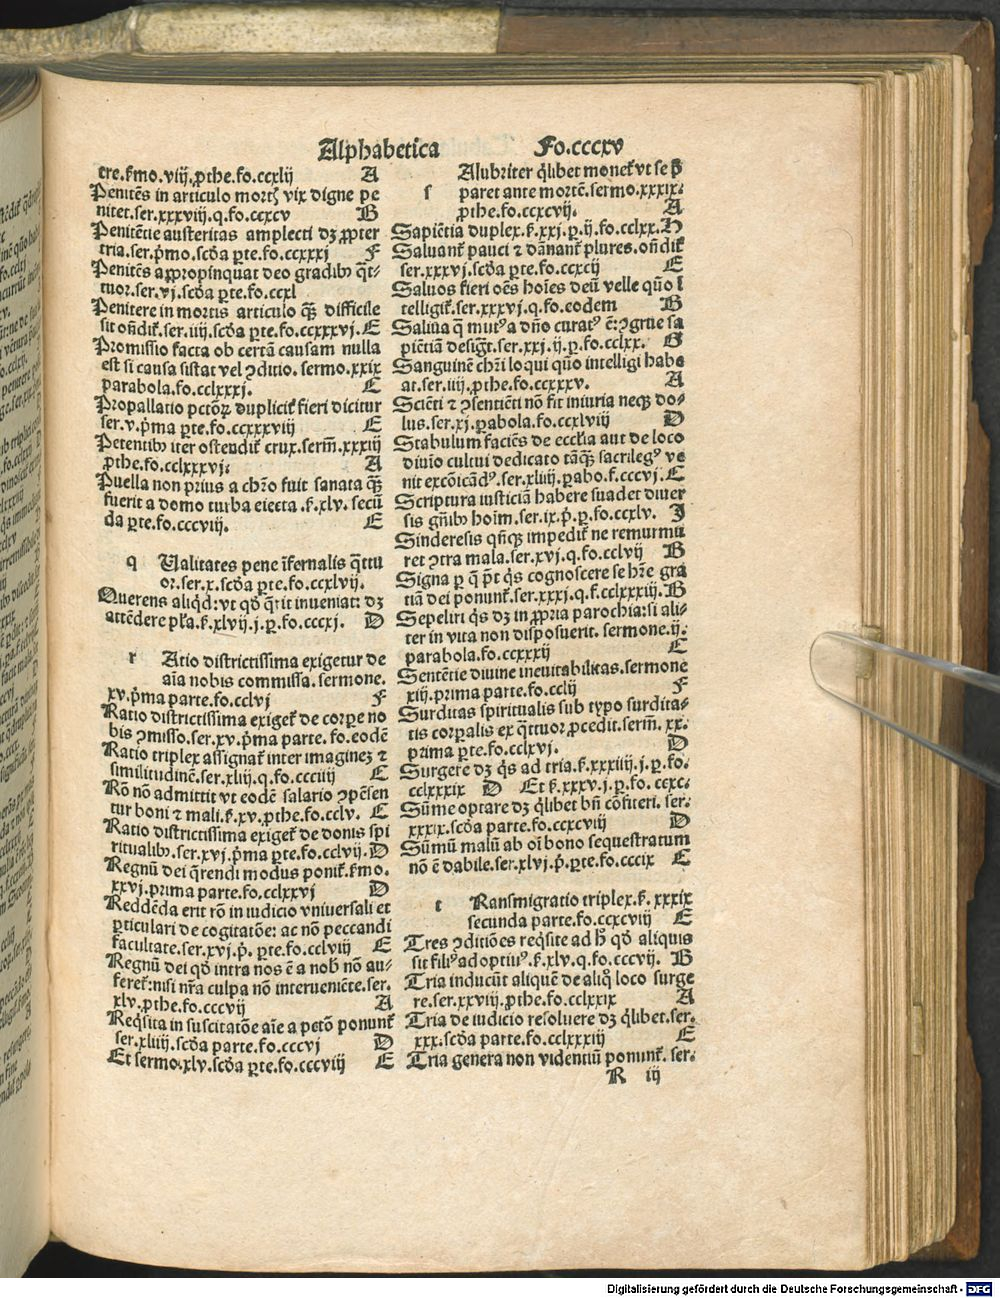 Alphabetica Fo.cccxv
tre.ẜmo.viij.ꝓthe.fo.ccxlij A
Penitẽs in articulo mortꝭ vix digne pe
nitet.ser.xxxviij.q.fo.ccxcv B
Penitẽtie austeritas amplecti dꝫ ꝓpter
tria.ser.p̃mo.scd̃a ꝑte.fo.ccxxxj F
Penitẽs aꝓpropinquat deo gradibꝰ q̃t-
tuor.ser.vj.scd̃a ꝑte.fo.ccxl
Penitere in mortis articulo qꝫ̃ difficile
sit oñdit᷑.ser.iiij.scd̃a ꝑte.fo.ccxxxvj.E
Promissio facta ob certã causam nulla
est si causa sistat vel ꝯditio.sermo.xxix
parabola.fo.cclxxxj. E
Propallatio pctõꝝ dupliciť fieri dicitur
ser.v.p̃ma ꝑte.fo.ccxxxviij E
Petentibꝰ iter ostendit᷑ crux.serm̃.xxxiij
ꝓthe.fo.cclxxxvj: A
Puella non prius a chr̃o fuit sanata qꝫ̃
fuerit a domo turba eiecta.ẜ.xlv.secũ
da ꝑte.fo.cccviij. E
q Ualitates pene ĩfernalis q̃ttu
or.ser.x.scd̃a ꝑte.fo.ccxlvij.
Querens aliqd̃:vt qd̃ q̃rit inueniat: dꝫ
attẽdere pl̃a.ẜ.xlvij.j.p.fo.cccxj. D
r Atio districtissima exigetur de
aĩa nobis commissa.sermone.
xv.p̃ma parte.fo.cclvj F
Ratio districtissima exiget᷑ de corpe no
bis ꝯmisso.ser.xv.p̃ma parte.fo.eodẽ
Ratio triplex assignat᷑ inter imaginez ⁊
similitudinẽ.ser.xliij.q.fo.ccciiij E
Rõ nõ admittit vt eodẽ salario ꝯpẽsen
tur boni ⁊ mali.ẜ.xv.ꝓthe.fo.cclv. E
Ratio districtissima exiget᷑ de donis spi
ritualibꝰ.ser.xvj.p̃ma ꝑte.fo.cclvij.D
Regnũ dei q̃rendi modus ponit᷑.ẜmo.
xxvj.prima parte.fo.cclxxvj D
Reddẽda erit rõ in iudicio vniuersali et
ꝑticulari de cogitatõe: ac nõ peccandi
facultate.ser.xvj.p̃. ꝑte.fo.cclviij E
Regnũ dei qd̃ intra nos ẽ a nob̃ nõ au-
feret᷑:nisi nr̃a culpa nõ interueniẽte.ser.
xlv.ꝓthe.fo.cccvij A
Req̃sita in suscitatõe aĩe a pctõ ponunt᷑
ser.xliiij.scd̃a parte.fo.cccvj D
Et sermo.xlv.scd̃a ꝑte.fo.cccviij E
s Alubriter q̃libet monet᷑ vt se p̃
paret ante mortẽ.sermo.xxxix.
ꝓthe.fo.ccxcvij. A
Sapiẽtia duplex.ẜ.xxj.p.ij.fo.cclxx.H
Saluant᷑ pauci ⁊ dãnant᷑ plures.oñdit᷑
ser.xxxvj.scd̃a ꝑte.fo.ccxcij E
Saluos fieri oẽs hoĩes deũ velle quõ ĩ
telligit᷑.ser.xxxvj.q.fo.eodem B
Saliua q̃ mutꝰ a dño curatꝰ ẽ:ꝯgrue sa
piẽtiã desig̃t.ser.xxj.ij.p.fo.cclxx. G
Sanguinẽ chr̃i loqui quõ intelligi habe
at.ser.iiij.ꝓthe.fo.ccxxxv. A
Sciẽti ⁊ ꝯsentiẽti nõ fit iniuria neqꝫ do-
lus.ser.xj.ꝑabola.fo.ccxlviij D
Stabulum faciẽs de ecclĩa aut de loco
diuĩo cultui dedicato tãqꝫ̃ sacrilegꝰ ve
nit excõicãdꝰ.ser.xliiij.ꝑabo.f.cccvj.E
Scriptura iusticiã habere suadet diuer
sis gñibꝰ hoĩm.ser.ix.p̃.ꝑ.fo.ccxlv. J
Sinderesis qñqꝫ impedit᷑ ne remurmu
ret ꝯtra mala.ser.xvj.q.fo.cclvij B
Signa ꝑ q̃ p̃t q̃s cognoscere se hr̃e gra
tiã dei ponunt᷑.ser.xxxj.q.f.cclxxxiij.B
Sepeliri q̃s dꝫ in ꝓpria parochia:si ali-
ter in vita non disposuerit. sermone.ij:
parabola.fo.ccxxxij E
Sentẽtie diuine ineuitabilitas.sermone
xiij.prima parte.fo.cclij F
Surditas spiritualis sub typo surdita-
tis corꝑalis ex q̃ttuor ꝓcedit.serm̃. xx.
prima ꝑte.fo.cclxvj. D
Surgere dꝫ q̃s ad tria.ẜ.xxxiiij.j.p.fo.
cclxxxix D Et ẜ.xxxv.j.p.fo. ccxc.
Sũme optare dꝫ q̃libet bñ cõfiteri. ser.
xxxix.scd̃a parte.fo.ccxcviij D
Sũmũ malũ ab oĩ bono sequestratum
nõ ẽ dabile.ser.xlvj.p̃.ꝑte.fo.cccix E
t Ransmigratio triplex.ẜ. xxxix
secunda parte.fo.ccxcviij E
Tres ꝯditiões req̃site ad h̃ qd̃ aliquis
sit filiꝰ adoptiuꝰ.ẜ.xlv.q.fo.cccvij. B
Tria inducũt aliquẽ de aliq̃ loco surge
re.ser.xxviij.ꝓthe.fo.cclxxix A
Tria de iudicio resoluere dꝫ q̃libet.ser.
xxx.scd̃a parte.fo.cclxxxiij E
Tria genera non videntiũ ponunt᷑. ser.
R iij
Digitalisierung gefördert durch die Deutsche Forschungsgemeinschaft - DFG